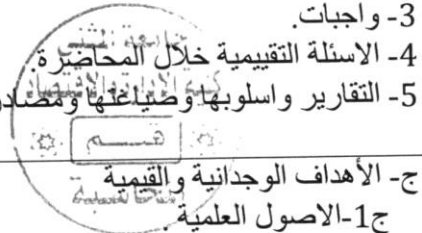 3- واجبات.
4- الاسئلة التقييمية خلال المحاضرة.
5- التقارير واسلوبها وصياغتها ومصادر
ج- الأهداف الوجدانية والقيمية
ج1-الاصول العلمية.